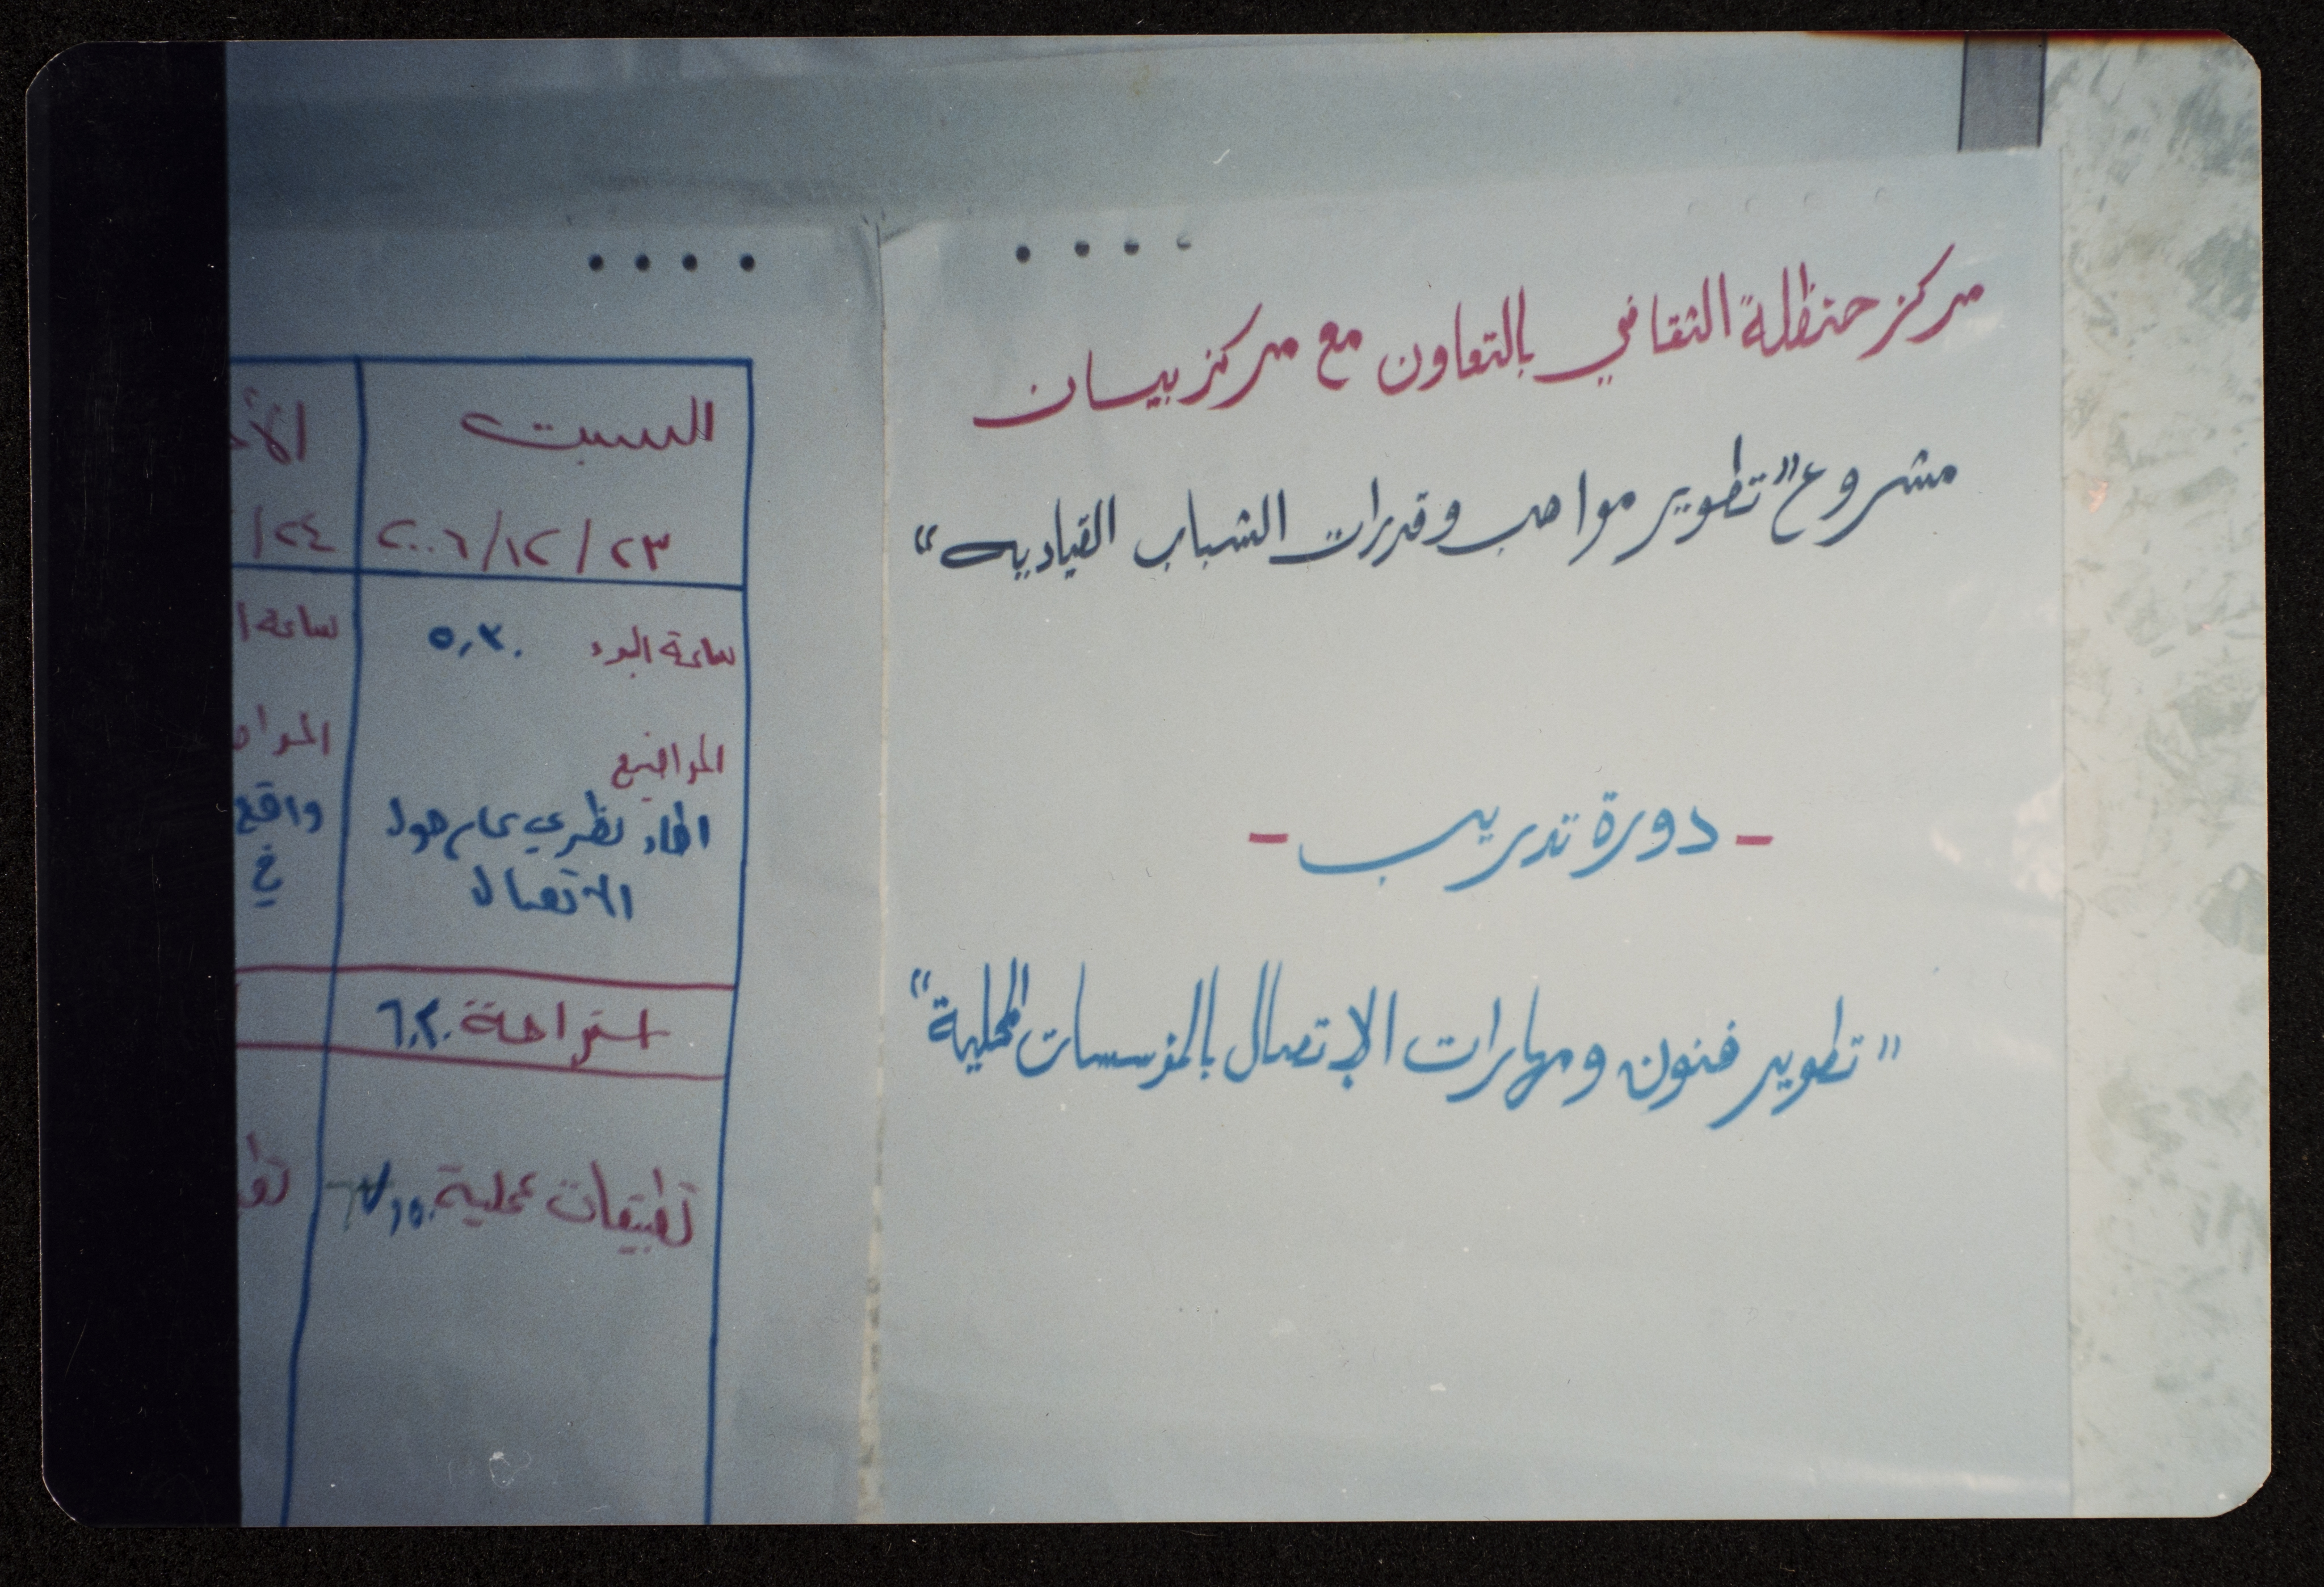 مركز حنظلة الثقافي بالتعاون مع مركز بيسان
مشروع "تطوير مواهب وقدرات الشباب القياديه"
- دورة تدريب -
"تطوير فنون ومهارات الإتصال بالمؤسسات المحلية"
السبت
٢٣/١٢/٢٠٠٦
ساعة البدء ٥,٣٠
المواضيع
اطار نظري عام حول
الاتصال
استراحة
تطبيقات عملية
الأ
٢٤/
ساعة ا
واقع
في